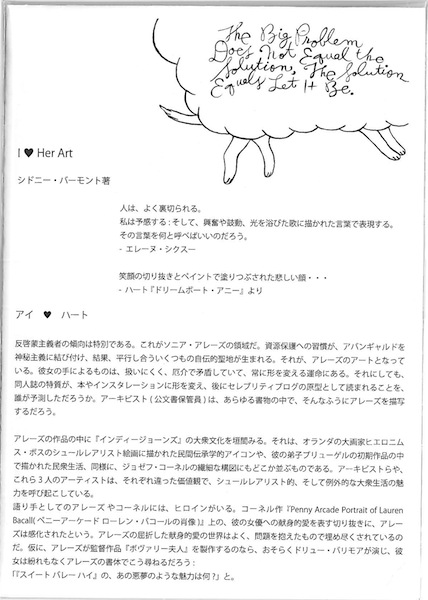 The Big Problem
Does Not Equal the
Solution, The Solution
Equals Let It Be.
I ♥ Her Art
シドニー・バーモント著
人は、よく裏切られる。
私は予感する：そして、興奮や鼓動、光を浴びた歌に描かれた言葉で表現する。
その言葉を何と呼べばいいのだろう。
- エレーヌ・シクスー
笑顔の切り抜きとペイントで塗りつぶされた悲しい顔・・・
- ハート『ドリームボート・アニー』より
アイ ♥ ハート
反啓蒙主義者の傾向は特別である。これがソニア・アレーズの領域だ。資源保護への習慣が、アバンギャルドを
神秘主義に結び付け、結果、平行し合ういくつもの自伝的聖地が生まれる。それが、アレーズのアートとなって
いる。彼女の手によるものは、扱いにくく、厄介で矛盾していて、常に形を変える運命にある。それにしても、
同人誌の特質が、本やインスタレーションに形を変え、後にセレブリティブログの原型として読まれることを、
誰が予測しただろうか。アーキビスト(公文書保管員)は、あらゆる書物の中で、そんなふうにアレーズを描写
するだろう。
アレーズの作品の中に『インディージョーンズ』の大衆文化を垣間みる。それは、オランダの大画家ヒエロニム
ス・ボスのシュールレアリスト絵画に描かれた民間伝承学的アイコンや、彼の弟子ブリューゲルの初期作品の中
で描かれた民衆生活、同様に、ジョゼフ・コーネルの繊細な構図にもどこか並ぶものである。アーキビストらや、
これら３人のアーティストは、それぞれ違った価値観で、シュールレアリスト的、そして例外的な大衆生活の魅
力を呼び起こしている。
語り手としてのアレーズ やコーネルには、ヒロインがいる。コーネル作『Penny Arcade Portrait of Lauren
Bacall( ペニーアーケード ローレン・バコールの肖像 )』上の、彼の女優への献身的愛を表す切り抜きに、アレー
ズは感化されたという。アレーズの屈折した献身的愛の世界はよく、問題を抱えたもので埋め尽くされているの
だ。仮に、アレーズが監督作品『ボヴァリー夫人』を製作するのなら、おそらくドリュー・バリモアが演じ、彼
女は紛れもなくアレーズの書体でこう尋ねるだろう：
「『スイート バレー ハイ』の、あの悪夢のような魅力は何？」と。